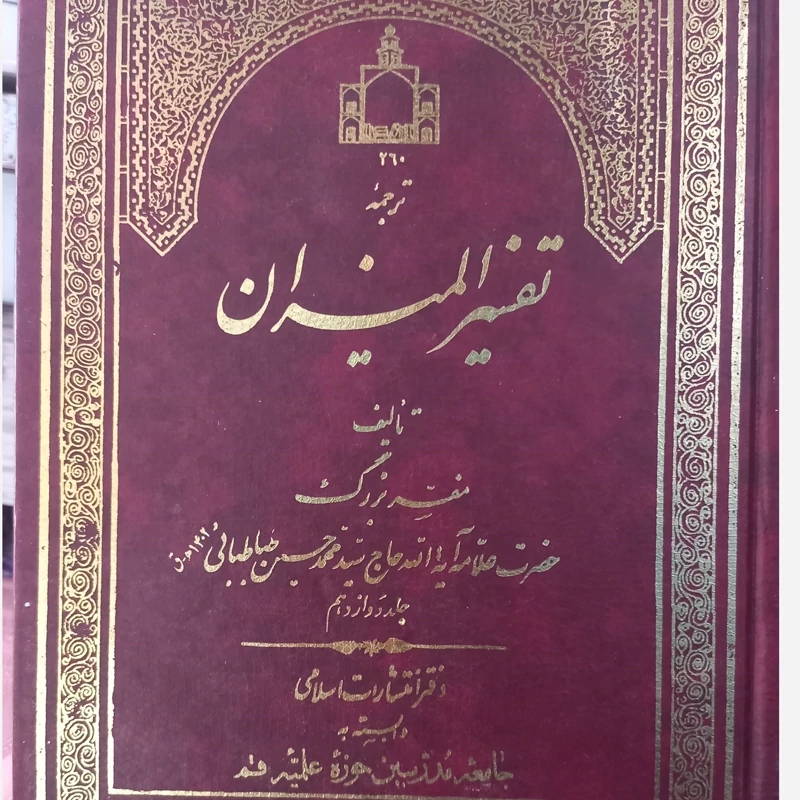 ۲٦۰
ترجمۀ
تفسیر المیزان
تألیف
مفسّر بزرگ
حضرت علامه آیة الله حاج سید محمد حسین طباطبائی ۱۴۰۲ ه‍.ق
جلد دوازدهم
دفتر انتشارات اسلامی
وابسته به
جامعه مدرسین حوزۀ علمیۀ قم